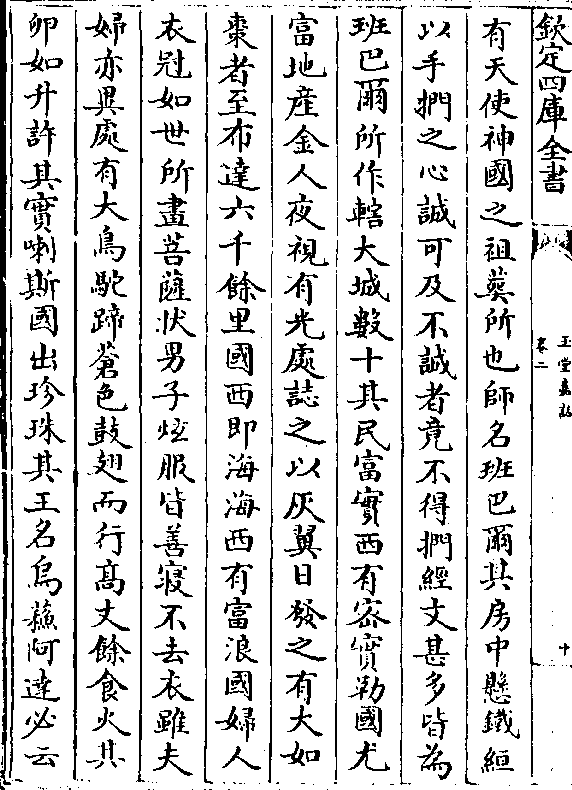 欽定四庫全書
玉堂嘉話
卷二
十
有天使神國之祖葬所也師名班巴爾其房中懸鐵絙
以手捫之心誠可及不誠者竟不得捫經文甚多皆為
班巴爾所作轄大城數十其民富實西有密實勒國尤
富地産金人夜視有光處誌之以灰翼日發之有大如
棗者至布達六千餘里國西即海海西有富浪國婦人
衣冠如世所畫菩薩状男子炫服皆善寢不去衣雖夫
婦亦異處有大鳥駝蹄蒼色鼓翅而行髙丈餘食火其
卵如升許其實喇斯國出珍珠其王名烏蘓阿達必云